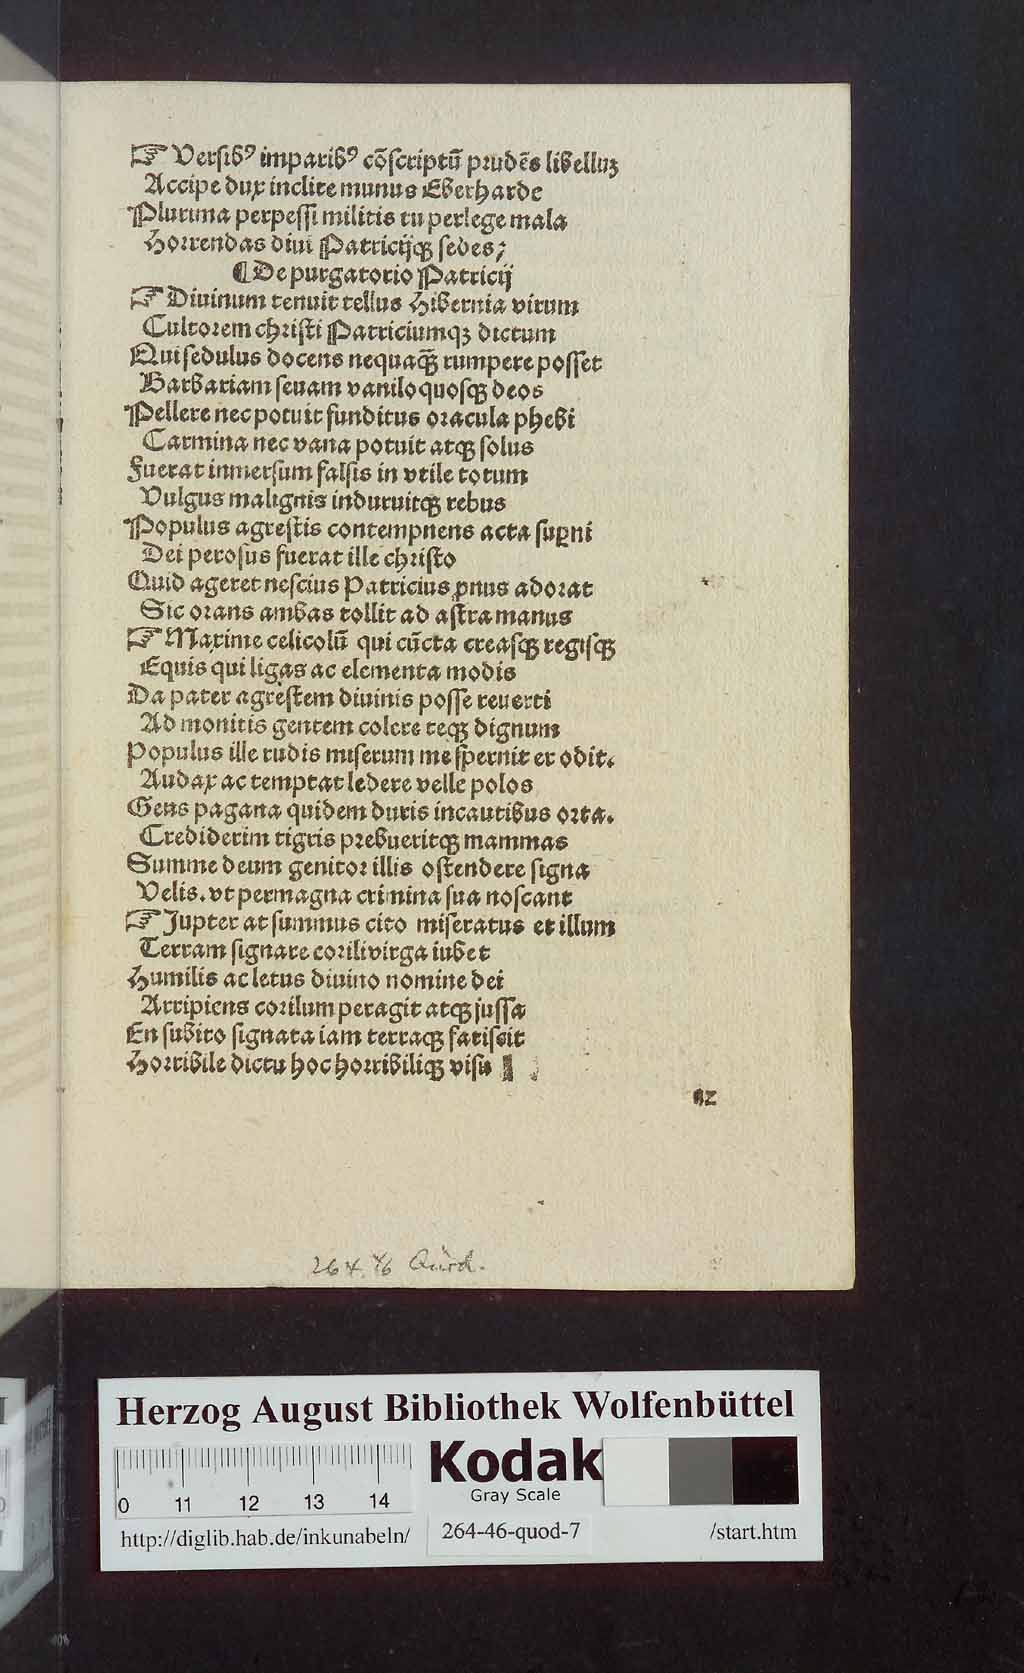 ☞ Versibꝰ imparibꝰ cõscriptũ prudẽs libelluꝫ
Accipe dux inclite munus Eberharde
Plurima perpessi militis tu perlege mala
Horrendas diui Patricijqꝫ sedes;
¶ De purgatorio Patricij
☞ Diuinum tenuit tellus Hibernia virum
Cultorem christi Patriciumqꝫ dictum
Qui sedulus docens nequaq̃ rumpere posset
Barbariam seuam vaniloquosqꝫ deos
Pellere nec potuit funditus oracula phebi
Carmina nec vana potuit atqꝫ solus
Fuerat inmersum falsis in vtile totum
Vulgus malignis induruitqꝫ rebus
Populus agrestis contempnens acta suꝑni
Dei perosus fuerat ille christo
Quid ageret nescius Patricius ꝓnus adorat
Sic orans ambas tollit ad astra manus
☞ Maxime celicolũ qui cũcta creasqꝫ regisqꝫ
Equis qui ligas ac elementa modis
Da pater agrestem diuinis posse reuerti
Ad monitis gentem colere teqꝫ dignum
Populus ille rudis miserum me spernit er odit.
Audax ac temptat ledere velle polos
Gens pagana quidem duris incautibus orta.
Crediderim tigris prebueritqꝫ mammas
Summe deum genitor illis ostendere signa
Velis. vt permagna crimina sua noscant
☞ Jupter at summus cito miseratus et illum
Terram signare corili virga iubet
Humilis ac letus diuino nomine dei
Arripiens corilum peragit atqꝫ jussa
En subito signata iam terraqꝫ fatiscit
Horribile dictu hoc horribiliqꝫ visu
a2
264. 46 Quod.
Herzog August Bibliothek Wolfenbüttel
Kodak
Gray Scale
0 11 12 13 14
http://diglib.hab.de/inkunabeln/ 264-46-quod-7 /start.htm